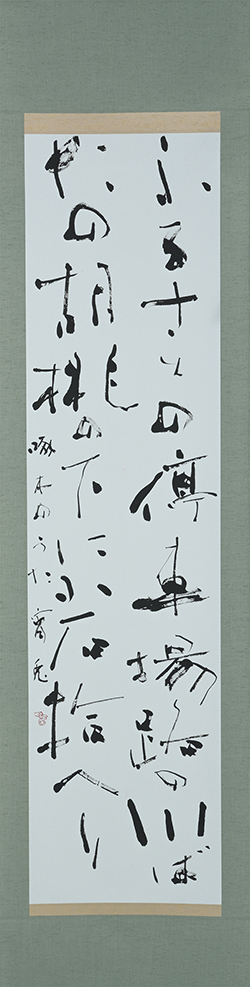 ふるさとの停車場路の川ば
たの胡桃の下に石拾へり
啄木のうた